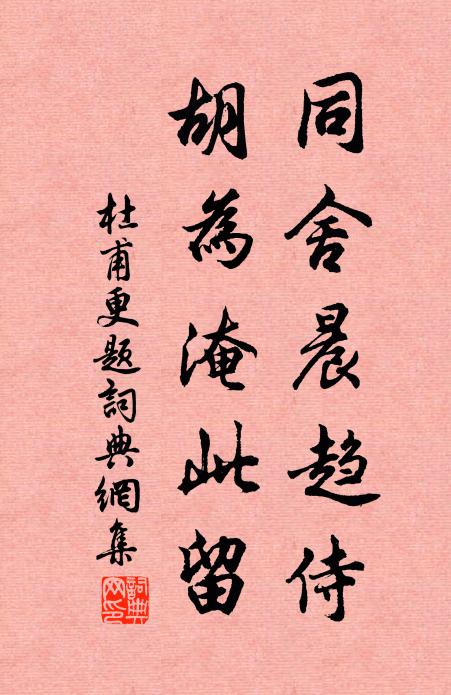 同舍晨趋侍
胡為淹此留
杜甫更题詞典網集
詞典網印